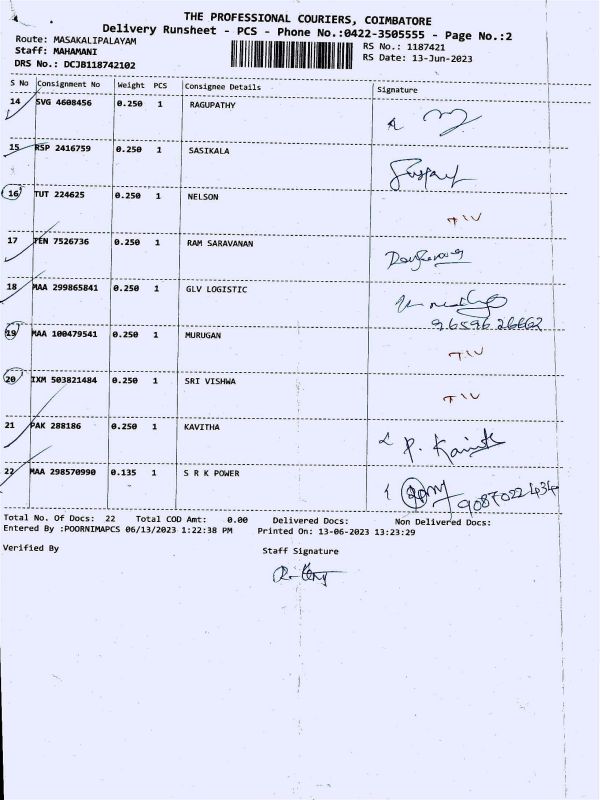 THE PROFESSIONAL COURIERS, COIMBATORE
Delivery Runsheet - PCS - Phone No.:0422-3505555 - Page No.:2
Route: MASAKALIPALAYAM
RS No.: 1187421
Staff: MAHAMANI
RS Date: 13-Jun-2023
DRS No.: DCJB118742102
S No Consignment No Weight PCS Consignee Details Signature
14 SVG 4608456 0.250 1 RAGUPATHY
15 RSP 2416759 0.250 1 SASIKALA
16 TUT 224625 0.250 1 NELSON
17 PEN 7526736 0.250 1 RAM SARAVANAN
18 MAA 299865841 0.250 1 GLV LOGISTIC
9659626662
19 MAA 100479541 0.250 1 MURUGAN
20 IXM 503821484 0.250 1 SRI VISHWA
21 PAK 288186 0.250 1 KAVITHA
22 MAA 298570990 0.135 1 S R K POWER
9087022434
Total No. Of Docs: 22 Total COD Amt: 0.00 Delivered Docs: Non Delivered Docs:
Entered By :POORNIMAPCS 06/13/2023 1:22:38 PM Printed On: 13-06-2023 13:23:29
Verified By Staff Signature